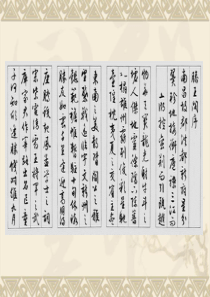 滕王阁序
南昌故郡洪都新府星分
翼軫地接衡廬襟三江而
五湖控蠻荆而引甌越
物華天寶龍光射牛斗之
墟人傑地靈徐孺下陳蕃
之榻雄州霧列俊彩星馳
臺隍枕夷夏之交賓主盡
東南之美都督閻公之雅
望棨戟遥臨宇文新州之
懿範襜帷暫駐十旬休假
勝友如雲千里逢迎高朋
滿座騰蛟起鳳孟學士之詞
宗紫電清霜王將軍之武
庫家君作宰路出名區童
子何知躬逢勝餞時維九月